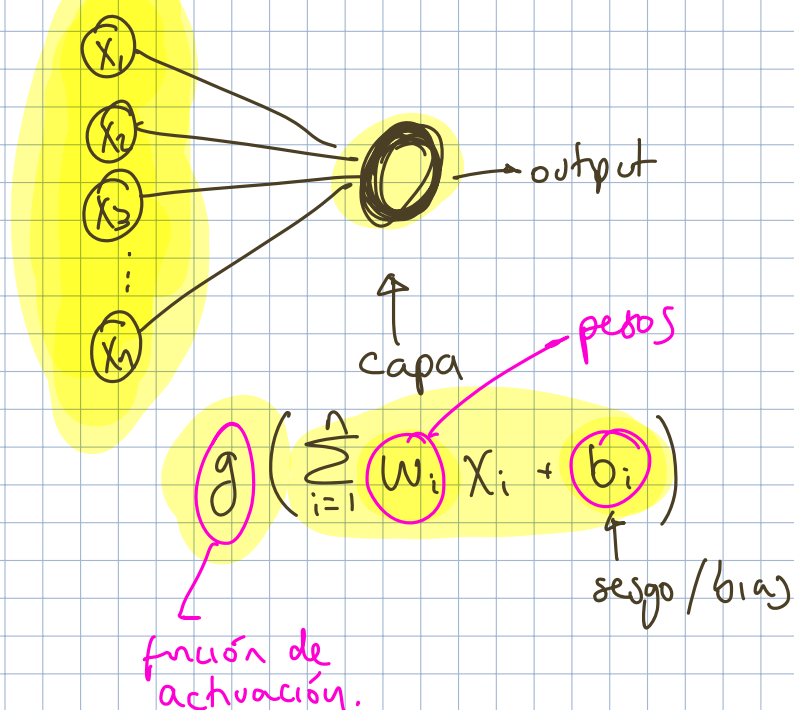 x₁
x₂
x₃
⋮
xₙ
output
capa
pesos
g ( Σ i=1 n wᵢ xᵢ + bᵢ )
sesgo / bias
función de
activación.